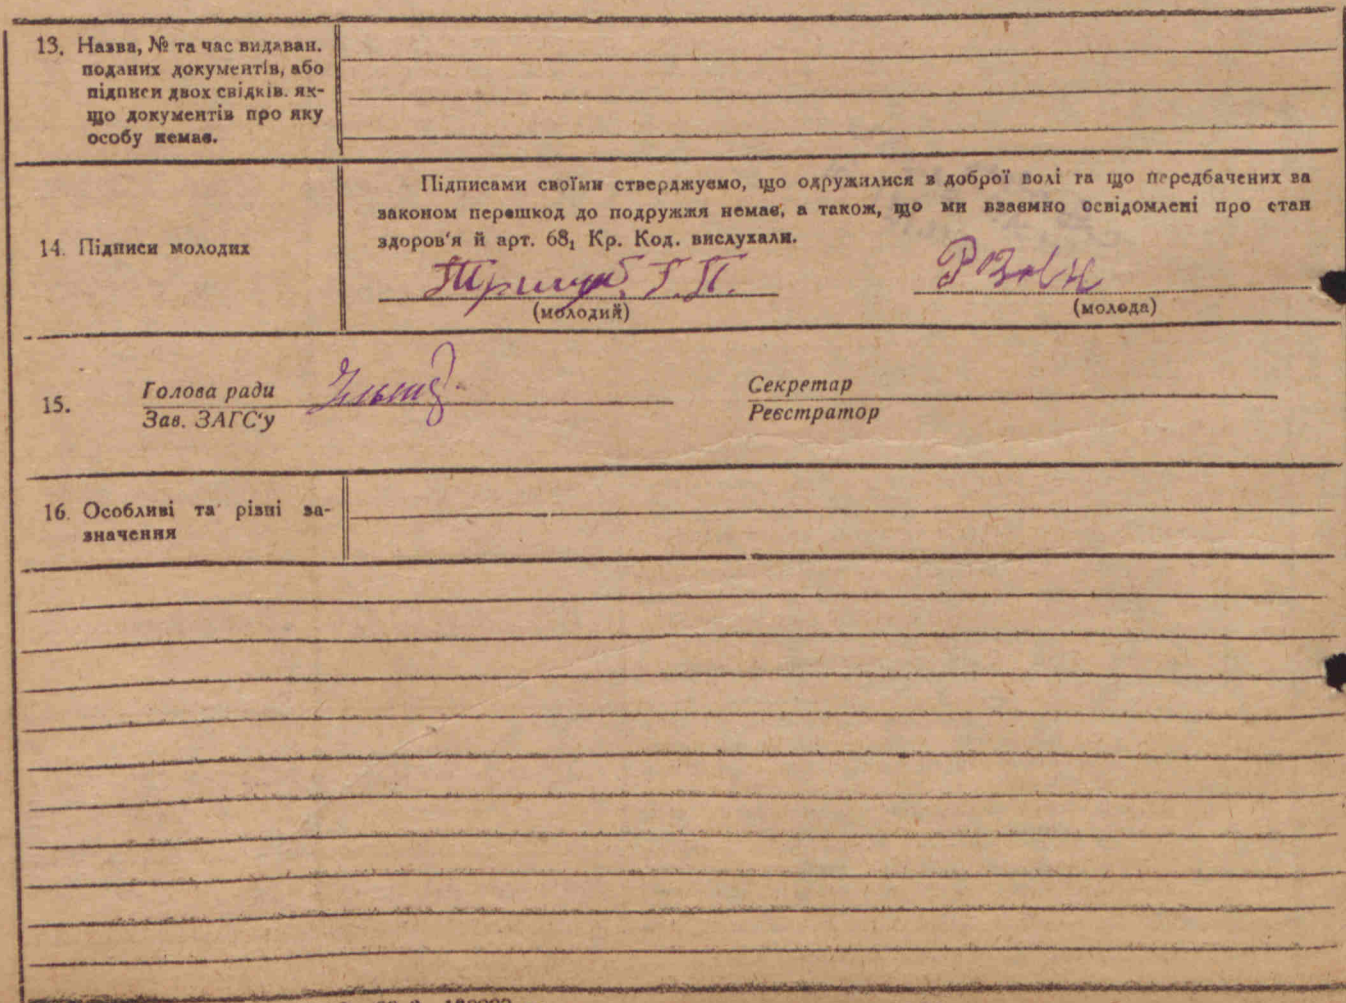 13. Назва, № та час видаван.
поданих документів, або
підписи двох свідків. як-
що документів про яку
особу немає.
Підписами своїми стверджуємо, що одружилися з доброї волі та що передбачених за
законом перешкод до подружжя немає, а також, що ми взаємно освідомлені про стан
здоров'я й арт. 68₁ Кр. Код. вислухали.
14. Підписи молодих
Г.П.
(молодий)
(молода)
15.
Голова ради
Зав. ЗАГС'у
Секретар
Реєстратор
16. Особливі та різні за-
значення